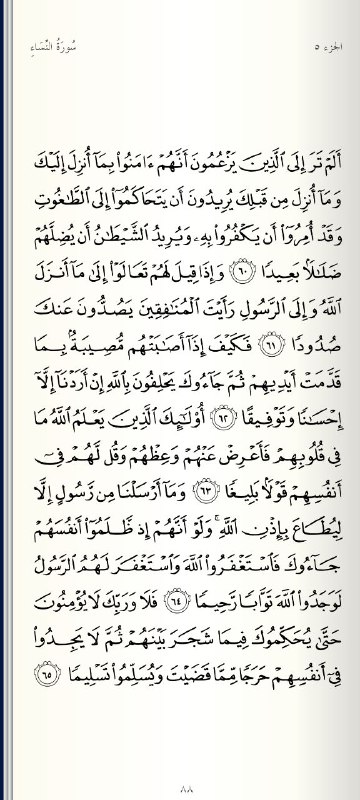 سُورَةُ النِّسَاءِ الجزء ٥
أَلَمۡ تَرَ إِلَى ٱلَّذِينَ يَزۡعُمُونَ أَنَّهُمۡ ءَامَنُواْ بِمَآ أُنزِلَ إِلَيۡكَ
وَمَآ أُنزِلَ مِن قَبۡلِكَ يُرِيدُونَ أَن يَتَحَاكَمُوٓاْ إِلَى ٱلطَّٰغُوتِ
وَقَدۡ أُمِرُوٓاْ أَن يَكۡفُرُواْ بِهِۦۖ وَيُرِيدُ ٱلشَّيۡطَٰنُ أَن يُضِلَّهُمۡ
ضَلَٰلَۢا بَعِيدٗا ٦٠ وَإِذَا قِيلَ لَهُمۡ تَعَالَوۡاْ إِلَىٰ مَآ أَنزَلَ
ٱللَّهُ وَإِلَى ٱلرَّسُولِ رَأَيۡتَ ٱلۡمُنَٰفِقِينَ يَصُدُّونَ عَنكَ
صُدُودٗا ٦١ فَكَيۡفَ إِذَآ أَصَٰبَتۡهُم مُّصِيبَةُۢ بِمَا
قَدَّمَتۡ أَيۡدِيهِمۡ ثُمَّ جَآءُوكَ يَحۡلِفُونَ بِٱللَّهِ إِنۡ أَرَدۡنَآ إِلَّآ
إِحۡسَٰنٗا وَتَوۡفِيقًا ٦٢ أُوْلَٰٓئِكَ ٱلَّذِينَ يَعۡلَمُ ٱللَّهُ مَا
فِي قُلُوبِهِمۡ فَأَعۡرِضۡ عَنۡهُمۡ وَعِظۡهُمۡ وَقُل لَّهُمۡ فِيٓ
أَنفُسِهِمۡ قَوۡلَۢا بَلِيغٗا ٦٣ وَمَآ أَرۡسَلۡنَا مِن رَّسُولٍ إِلَّا
لِيُطَاعَ بِإِذۡنِ ٱللَّهِۚ وَلَوۡ أَنَّهُمۡ إِذ ظَّلَمُوٓاْ أَنفُسَهُمۡ
جَآءُوكَ فَٱسۡتَغۡفَرُواْ ٱللَّهَ وَٱسۡتَغۡفَرَ لَهُمُ ٱلرَّسُولُ
لَوَجَدُواْ ٱللَّهَ تَوَّابٗا رَّحِيمٗا ٦٤ فَلَا وَرَبِّكَ لَا يُؤۡمِنُونَ
حَتَّىٰ يُحَكِّمُوكَ فِيمَا شَجَرَ بَيۡنَهُمۡ ثُمَّ لَا يَجِدُواْ
فِيٓ أَنفُسِهِمۡ حَرَجٗا مِّمَّا قَضَيۡتَ وَيُسَلِّمُواْ تَسۡلِيمٗا ٦٥
٨٨